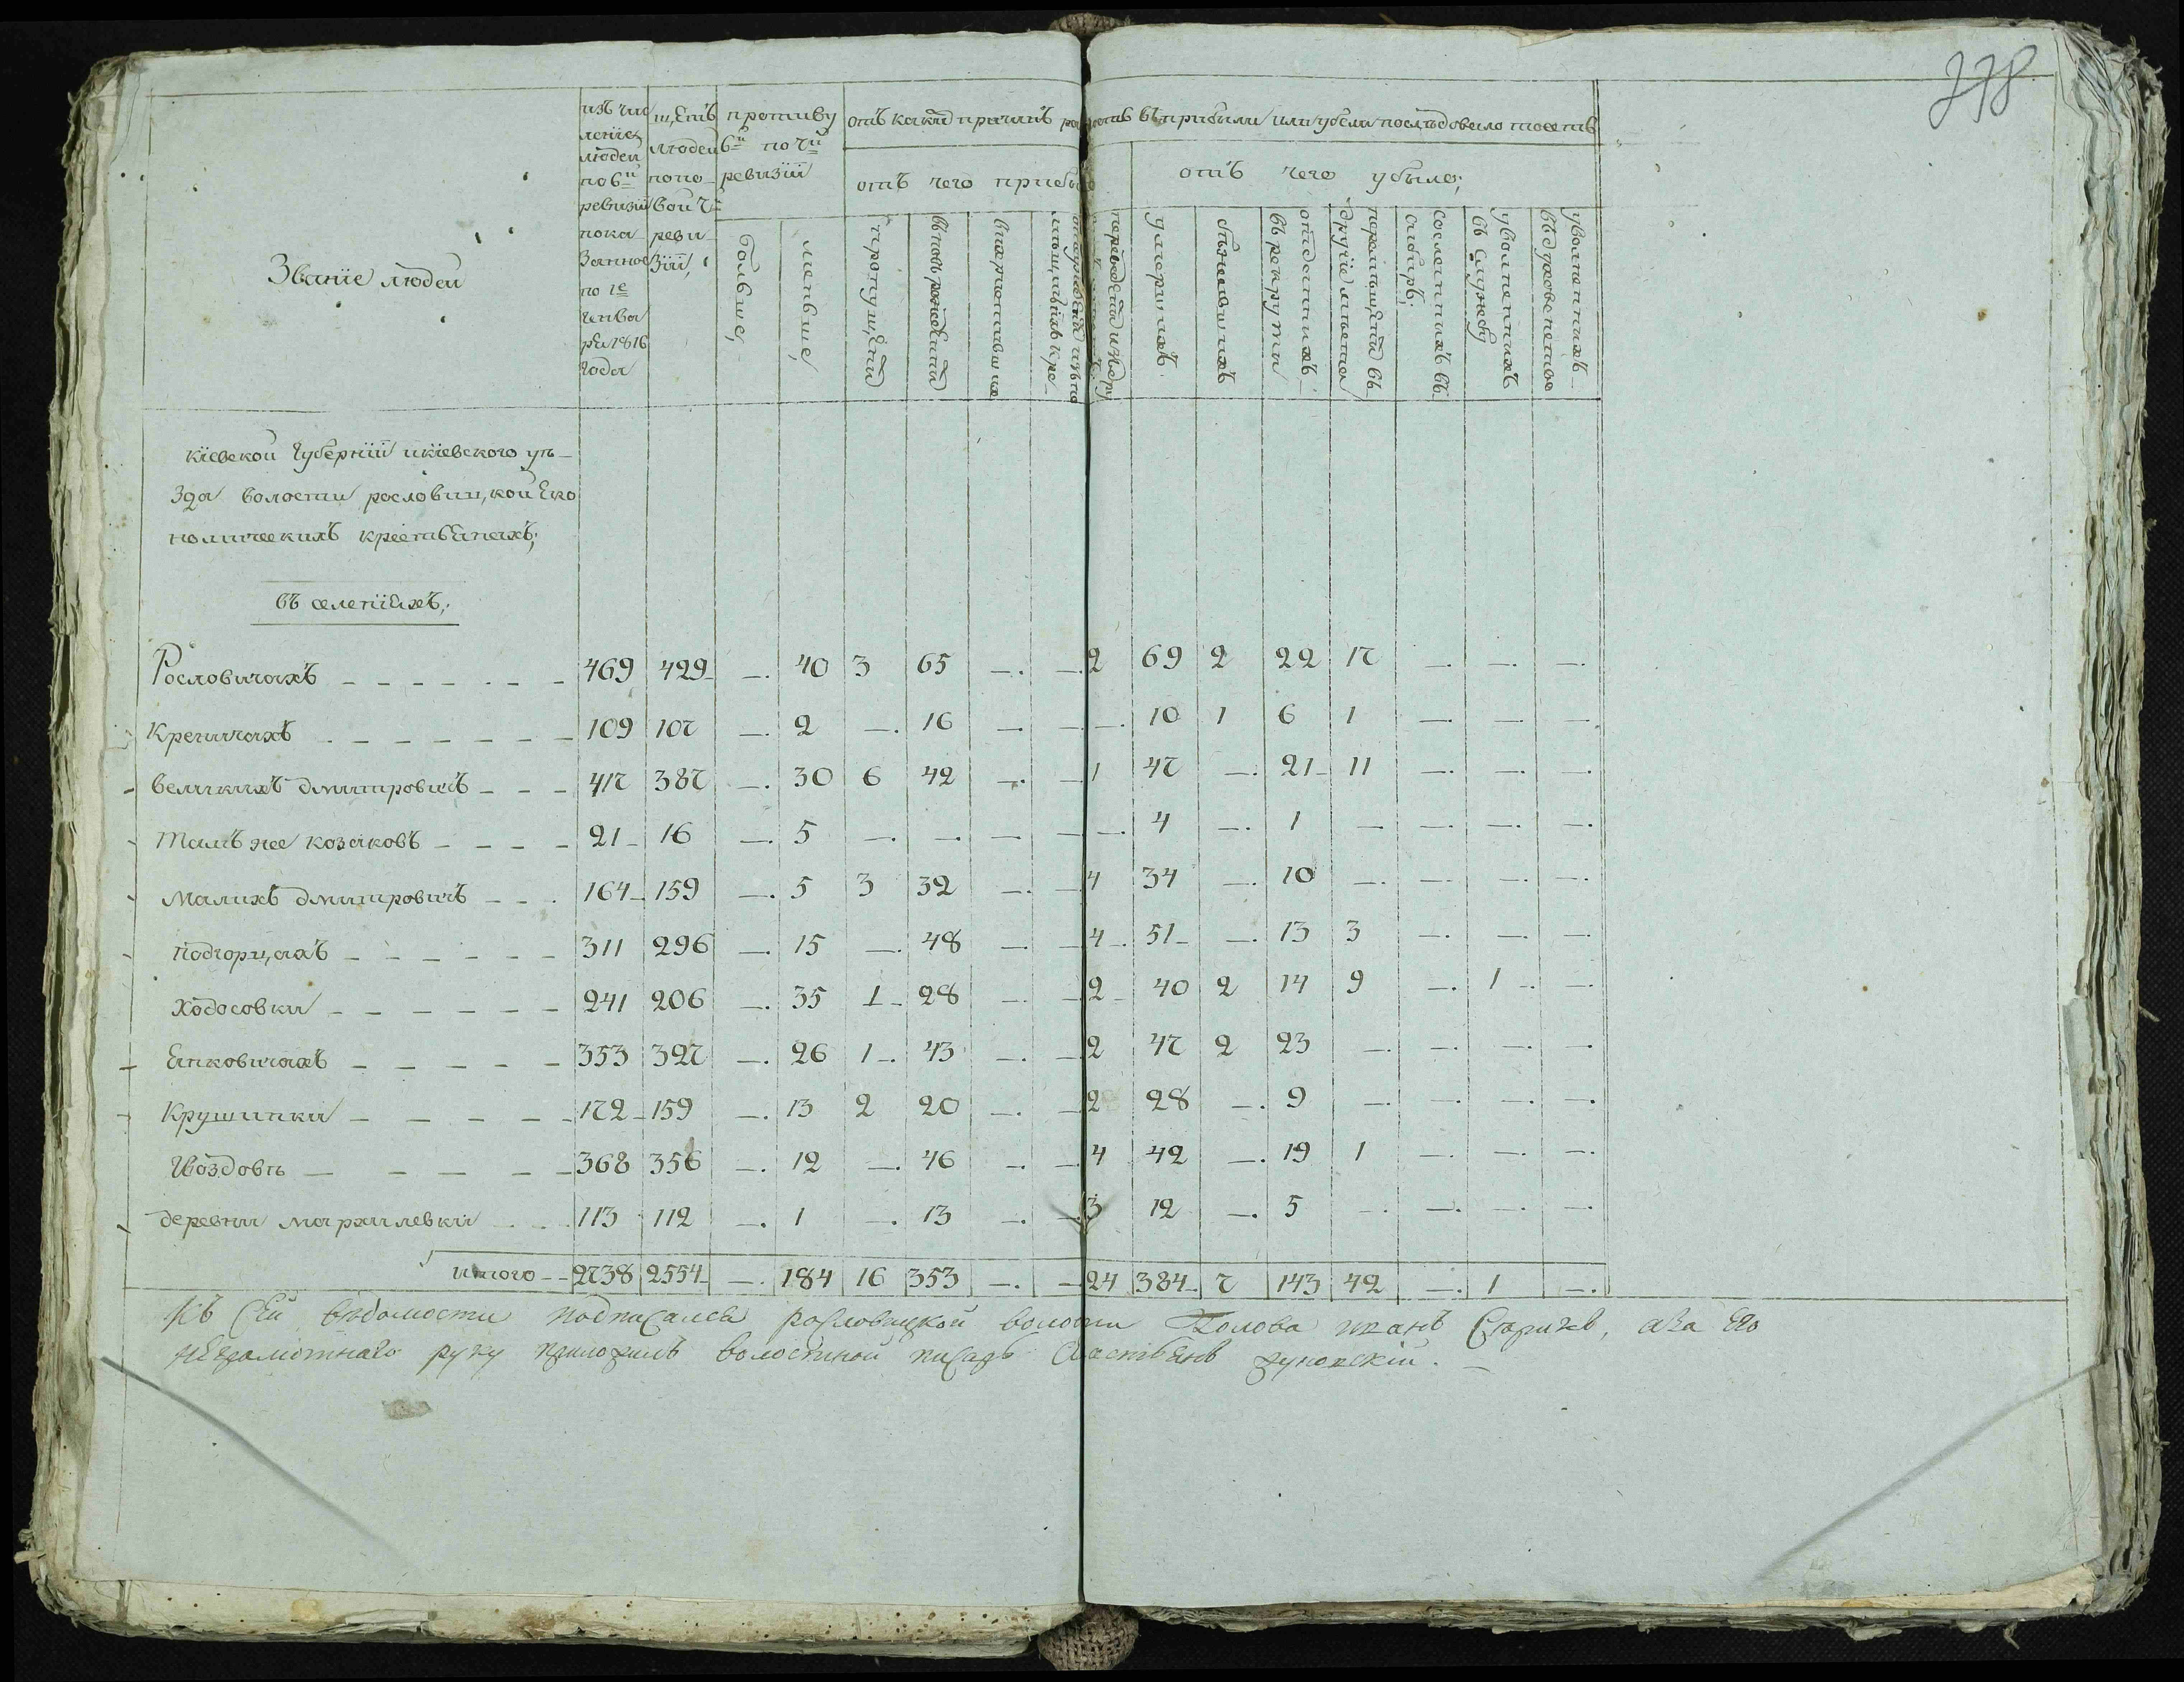 278
Званіе людей
изъ чис
леніе
людей
по 6й
ревизіи
пока
занное
по 1е
генва
ря 1816
года
людей
по но
вой 7й
реви
зіи,
противу
6й по 7й
ревизіи
большіе,
меньше,
отъ какихъ причинъ разность въ прибыли или убыли последовала то есть
отъ чего прибыло
пропущенныхъ
вновь рожденныхъ
отъ чего убыло;
умершихъ
бежавшихъ
отданныхъ
въ рекруты
перемещеныхъ въ
другіе места
сосланныхъ въ
сибирь;
уволненныхъ
въ службу
уволненныхъ
въ духовенство
кіевской губерніи и кіевского уѣ
зда волости рословицкой Еко
номическихъ крестьянахъ;
въ селеніяхъ;
Рословичахъ 469 429 — 40 3 65 — — 2 69 2 22 17 — — —
Креничахъ 109 107 — 2 — 16 — — — 10 1 6 1 — — —
великихъ дмитровичъ 417 387 — 30 6 42 — — 1 47 — 21 11 — — —
Тамъ же козаковъ 21 16 — 5 — — — — — 4 — 1 — — — —
Малихъ дмитровичъ 164 159 — 5 3 32 — — 4 34 — 10 — — — —
Подгорцахъ 311 296 — 15 — 48 — — 4 51 — 13 3 — — —
Ходосовки 241 206 — 35 1 28 — — 2 40 2 14 9 — 1 —
Янковичахъ 353 327 — 26 1 43 — — 2 47 2 23 — — — —
Крушинки 172 159 — 13 2 20 — — 2 28 — 9 — — — —
Гвоздовѣ 368 356 — 12 — 46 — — 4 42 — 19 1 — — —
деревни мархилевки 113 112 — 1 — 13 — — 3 12 — 5 — — — —
итого 2738 2554 — 184 16 353 — — 24 384 7 143 42 — 1 —
Къ сей вѣдомости подписался рословицкой волости Голова иванъ, а за его
неграмотнаго руку приложилъ волостной писарь